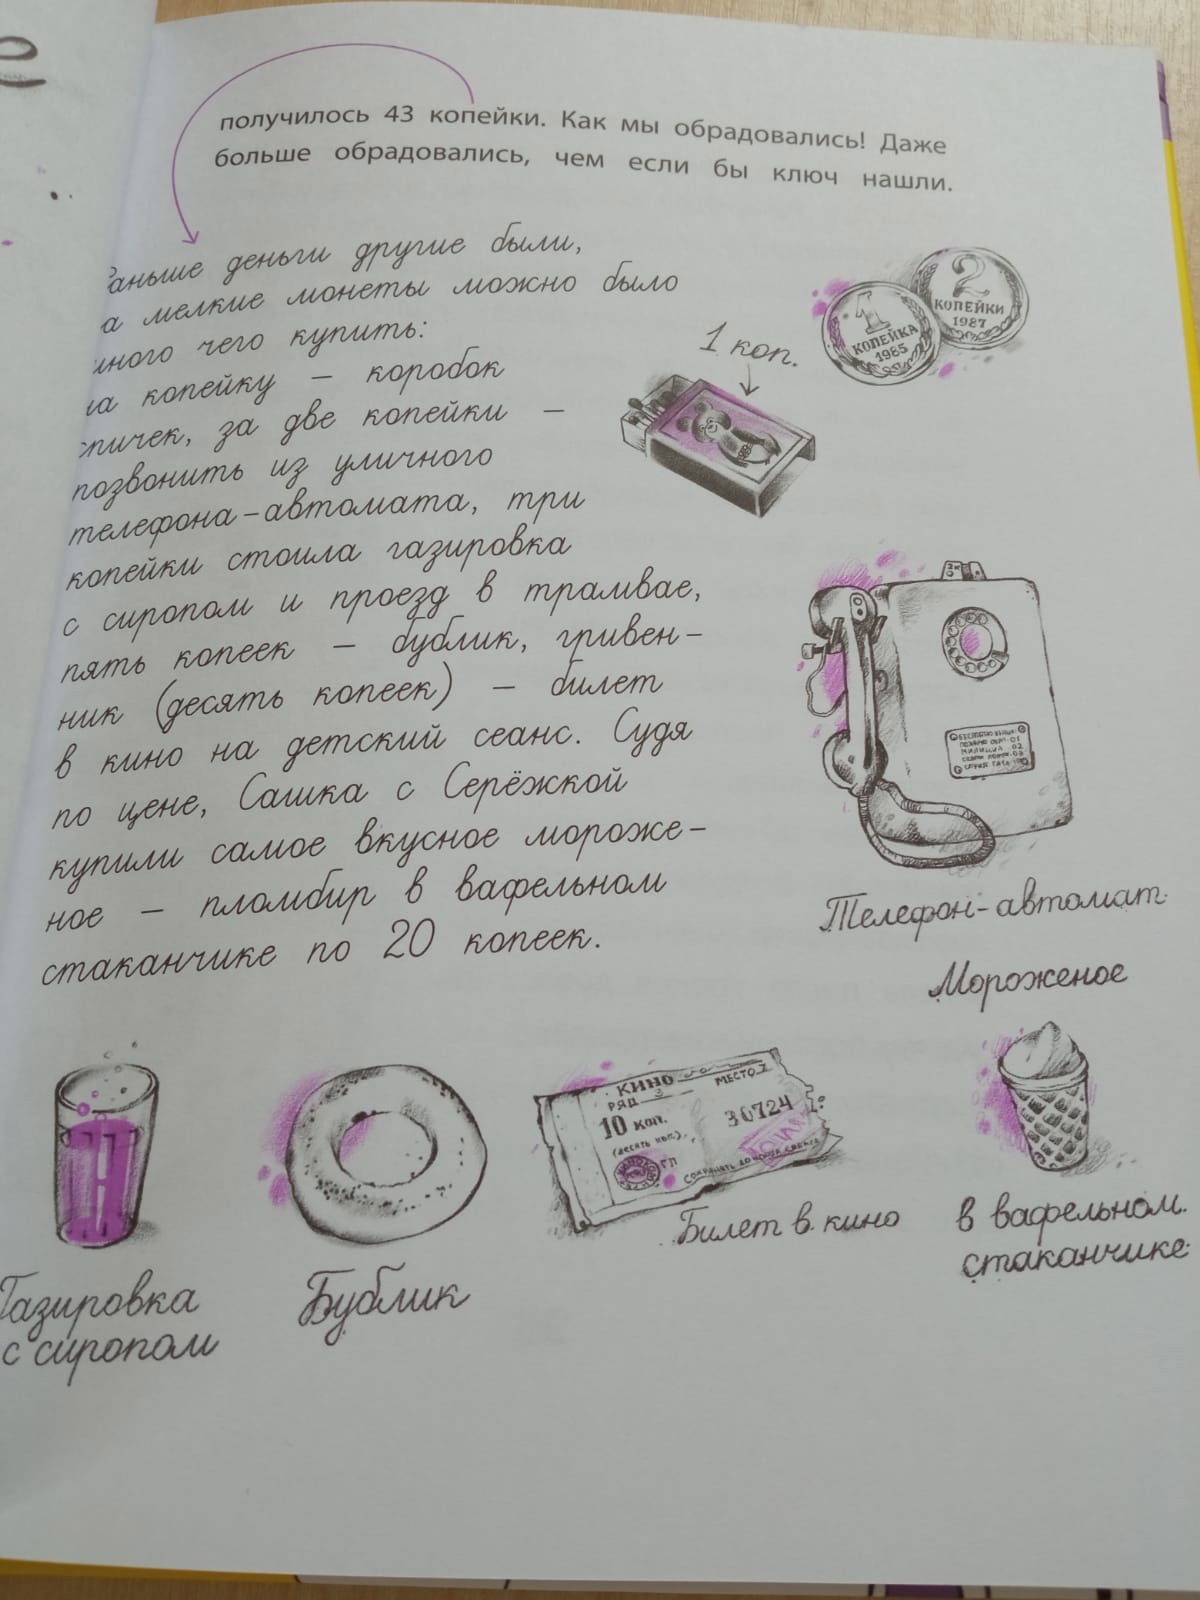 получилось 43 копейки. Как мы обрадовались! Даже
больше обрадовались, чем если бы ключ нашли.
Раньше деньги другие были,
за мелкие монеты можно было
много чего купить:
за копейку – коробок
спичек, за две копейки –
позвонить из уличного
телефона-автомата, три
копейки стоила газировка
с сиропом и проезд в трамвае,
пять копеек – бублик, гривен-
ник (десять копеек) – билет
в кино на детский сеанс. Судя
по цене, Сашка с Серёжкой
купили самое вкусное мороже-
ное – пломбир в вафельном
стаканчике по 20 копеек.
1 КОПЕЙКА 1985
2 КОПЕЙКИ 1987
1 коп.
МИЛИЦИЯ 02
Телефон-автомат
Мороженое
в вафельном
стаканчике
КИНО
РЯД 3 МЕСТО 7
10 коп. 30724
(десять коп.)
Билет в кино
Газировка
с сиропом
Бублик